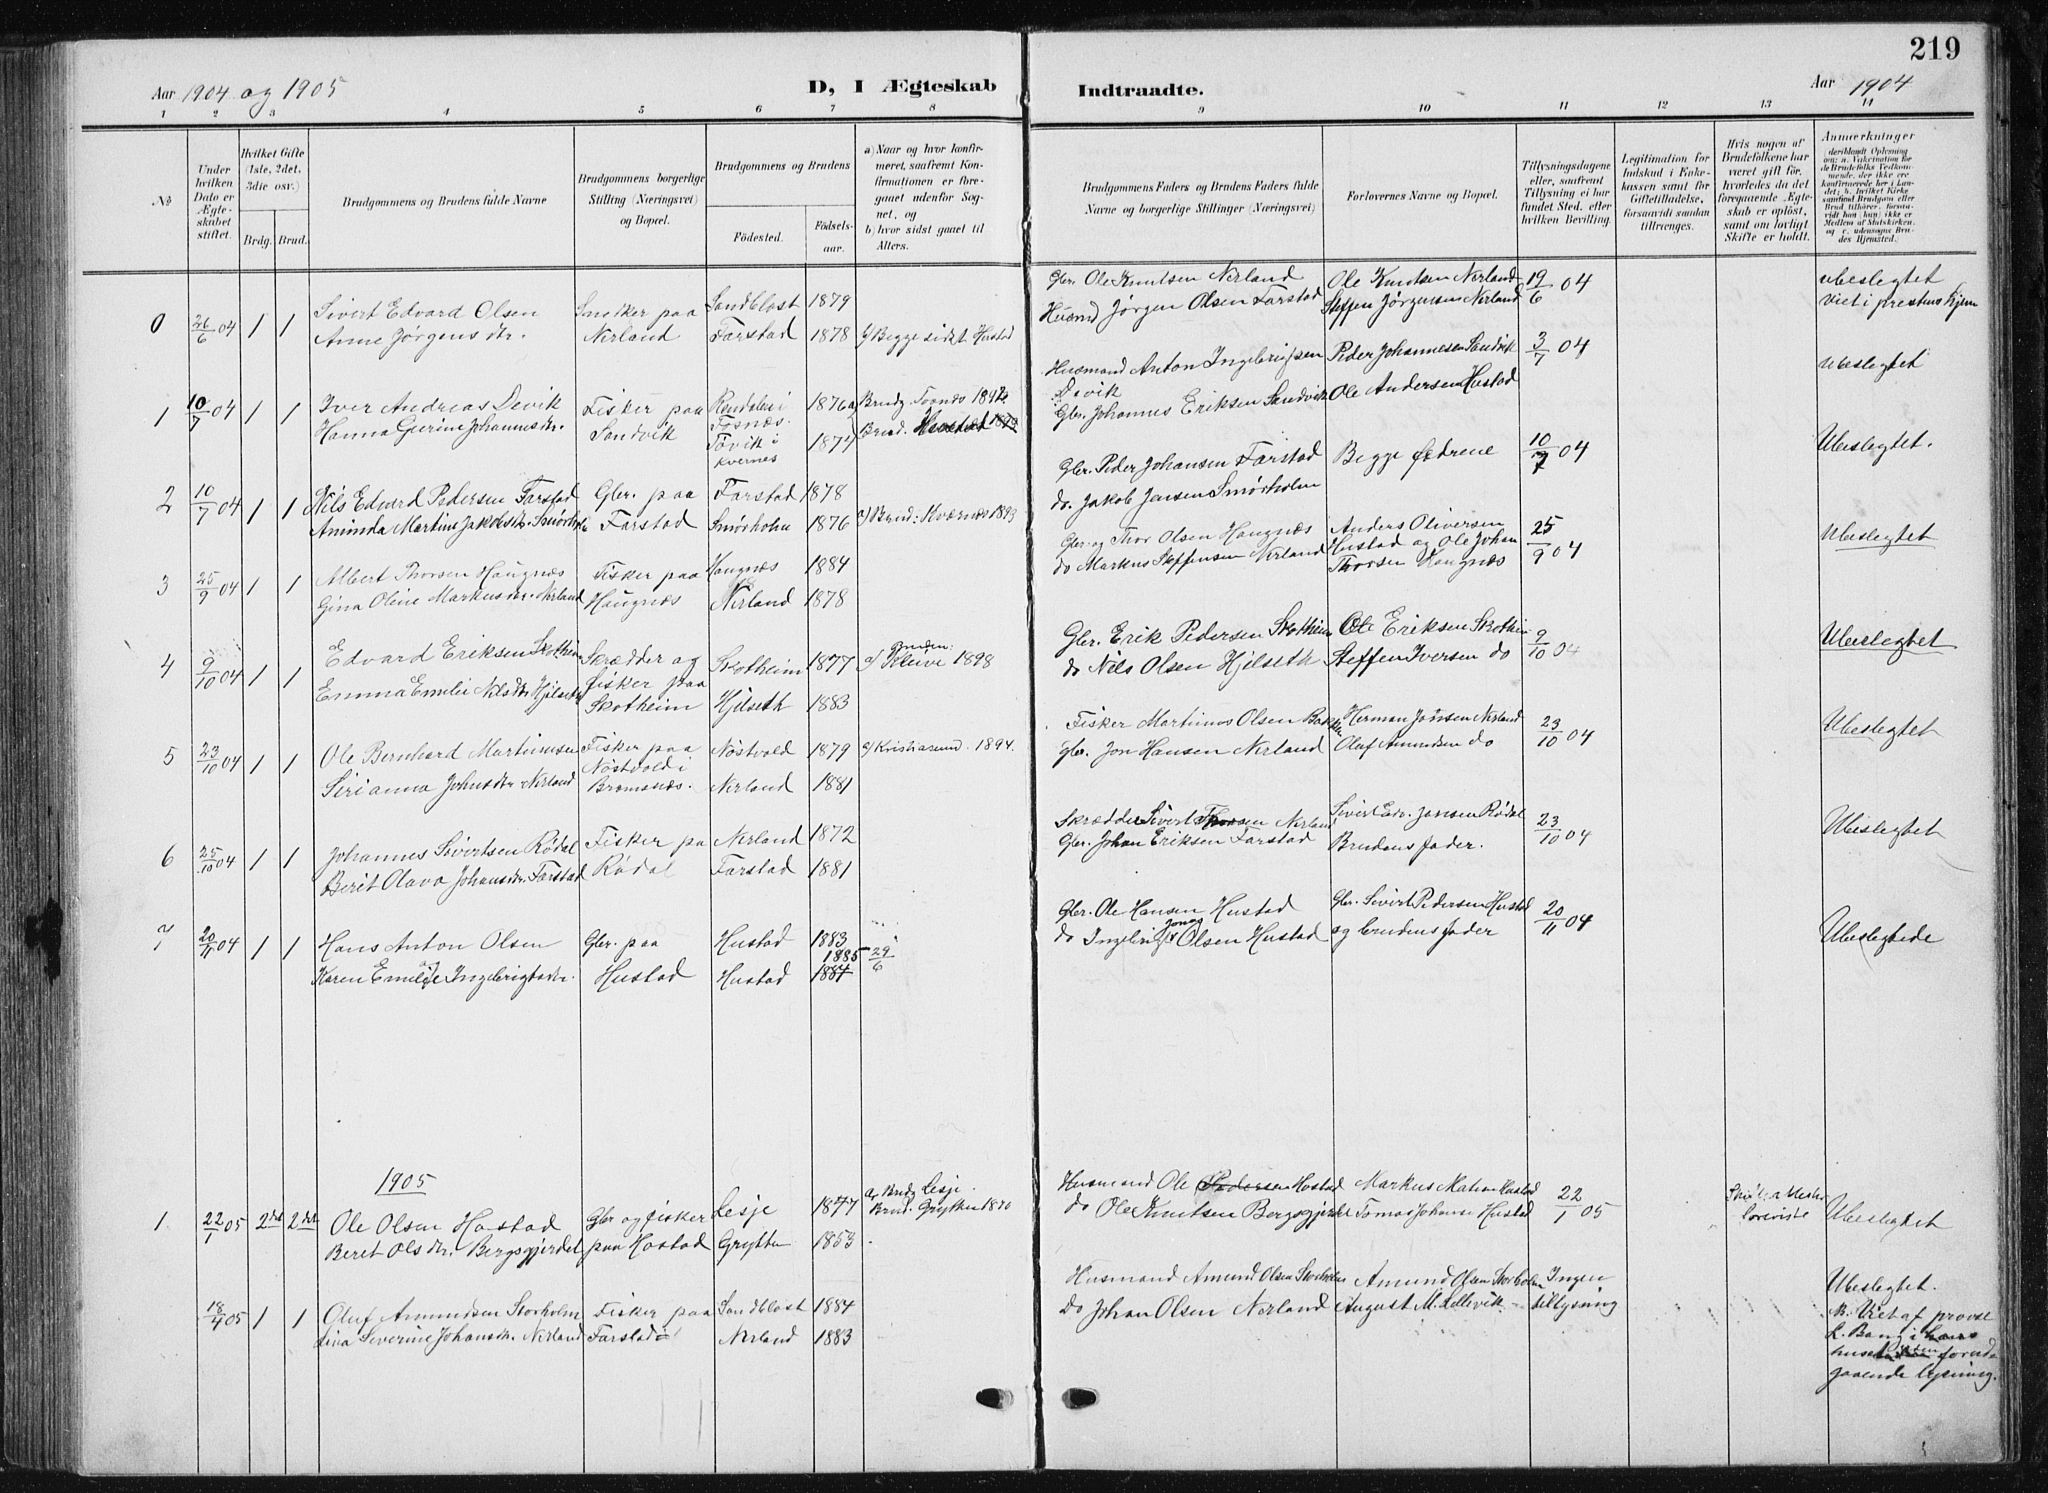 219
Aar 1904 og 1905
D, I Ægteskab
Indtraadte.
Aar 1904
1 2 3 4 5 6 7 8 9 10 11 12 13 14
№
Under hvilken Dato er Ægteskabet stiftet.
Hvilket Gifte (1ste, 2det, 3die osv.)
Brdg. Brud.
Brudgommens og Brudens fulde Navne
Brudgommens borgerlige Stilling (Næringsvei) og Bopæl.
Brudgommens og Brudens
Fødested.
Fødselsaar.
a) Naar og hvor konfirmeret, saafremt Konfirmationen er foregaaet udenfor Sognet, og
b) hvor sidst gaaet til Alters.
Brudgommens Faders og Brudens Faders fulde Navne og borgerlige Stillinger (Næringsvei)
Forlovernes Navne og Bopæl.
Tillysningsdagene eller, saafremt Tillysning ei har fundet Sted, efter hvilken Bevilling.
Legitimation for Indskud i Enkekassen samt for Giftetilladelse, forsaavidt saadan tiltrænges.
Hvis nogen af Brudefolkene har været gift før, hvorledes da det foregaaende Ægteskab er opløst, samt om lovligt Skifte er holdt.
Anmærkninger
0 26/6 04 1 1 Sivert Edvard Olsen Snekker paa Sandblost 1879
Anne Jørgensdtr. Nerland Farstad 1878 b) Begge sidst Hustad
Gbr. Ole Knutsen Nerland Ole Knutsen Nerland 19/6 04 ubeslegtet
Husmd Jørgen Olsen Farstad Steffen Jørgensen Nerland Viet i prestens hjem
1 10/7 04 1 1 Iver Andreas Devik Fisker paa 1876 a) Brudg.
Hanna Gurine Johannesdtr. Sandvik Tøvik i Kvernes 1874 Brud. Hustad
Husmand Anton Ingebrigtsen Devik Peder Johannesen Sandvik 3/7 04 Ubeslegtet
Gbr. Johannes Eriksen Sandvik Ole Andersen Hustad
2 10/7 04 1 1 Nils Edvard Pedersen Farstad Gbr. paa Farstad 1878
Aminda Martine Jakobsdtr. Smørholm Farstad Smørholm 1876 a) Brud: Kværnes 1893
Gbr. Peder Johansen Farstad Begge fædrene 10/7 04 Ubeslegtet.
do. Jakob Jensen Smørholm
3 25/9 04 1 1 Albert Thorsen Haugnæs Fisker paa Haugnæs 1884
Gina Oline Markusdtr. Nerland Haugnæs Nerland 1878
Gbr. og Thor Olsen Haugnæs Anders Oliversen 25/9 04 Ubeslegtet
do Markus Steffensen Nerland Hustad og Ole Johan Thorsen Haugnæs
4 9/10 04 1 1 Edvard Eriksen Skotheim Skrædder og Skotheim 1877 a) Bruden Kleive 1898
Emma Emilie Nilsdtr. Hjelseth fisker paa Skotheim Hjelseth 1883
Gbr. Erik Pedersen Skotheim Ole Eriksen Skotheim 9/10 04 Ubeslegtet
do Nils Olsen Hjelseth Steffen Iversen do
5 23/10 04 1 1 Ole Bernhard Martinusen Fisker paa Nøstvold 1879 a) Kristiasund. 1894.
Sirianna Johnsdtr. Nerland Nøstvold i Bremsnæs. Nerland 1881
Fisker Martinus Olsen Herman Jonsen Nerland 23/10 04 Ubeslegtet
Gbr. Jon Hansen Nerland Oluf Amundsen do
6 25/10 04 1 1 Johannes Sivertsen Rødal Fisker pa Nerland 1872
Berit Olava Johansdtr. Farstad Rødal Farstad 1881
Skrædder Sivert Thorsen Nerland Sivert Edv. Jonsen Rødal 23/10 04 Ubeslegtet
Gbr. Johan Eriksen Farstad Brudens fader.
7 20/11 04 1 1 Hans Anton Olsen Gbr. paa Hustad 1883
Karen Emilie Ingebrigtsdtr. Hustad Hustad 1884 1885 29/6
Gbr. Ole Hansen Hustad Gbr. Sivert Pedersen Hustad 20/11 04 Ubeslegtede
do Ingebrigt Jonas Olsen Hustad og brudens fader
1905
1. 22/1 05 2det 2det Ole Olsen Hostad Gbr og fisker Lesje 1877 a) Brudg. Lesje.
Beret Olsdtr. Bergsgjerdet paa Hostad Grytten 1853 Brud. Grytten 1870
Husmand Ole Pedersen Hostad 22/1 05 Ubeslegtet
do Ole Knutsen Bergsgjerdet
18/4 05 1 1 Oluf Amundsen Storholm Fisker paa Sandblost 1884
Lina Severine Johansdtr. Nerland Farstad Nerland 1883
Husmand Amund Olsen Storholm Amund Olsen Storholm Ingen Ubeslegtet.
do Johan Olsen Nerland August M. Lillevik tillysning
Viet af provst
L. Bang i
huset uden forudgaaende lysning.